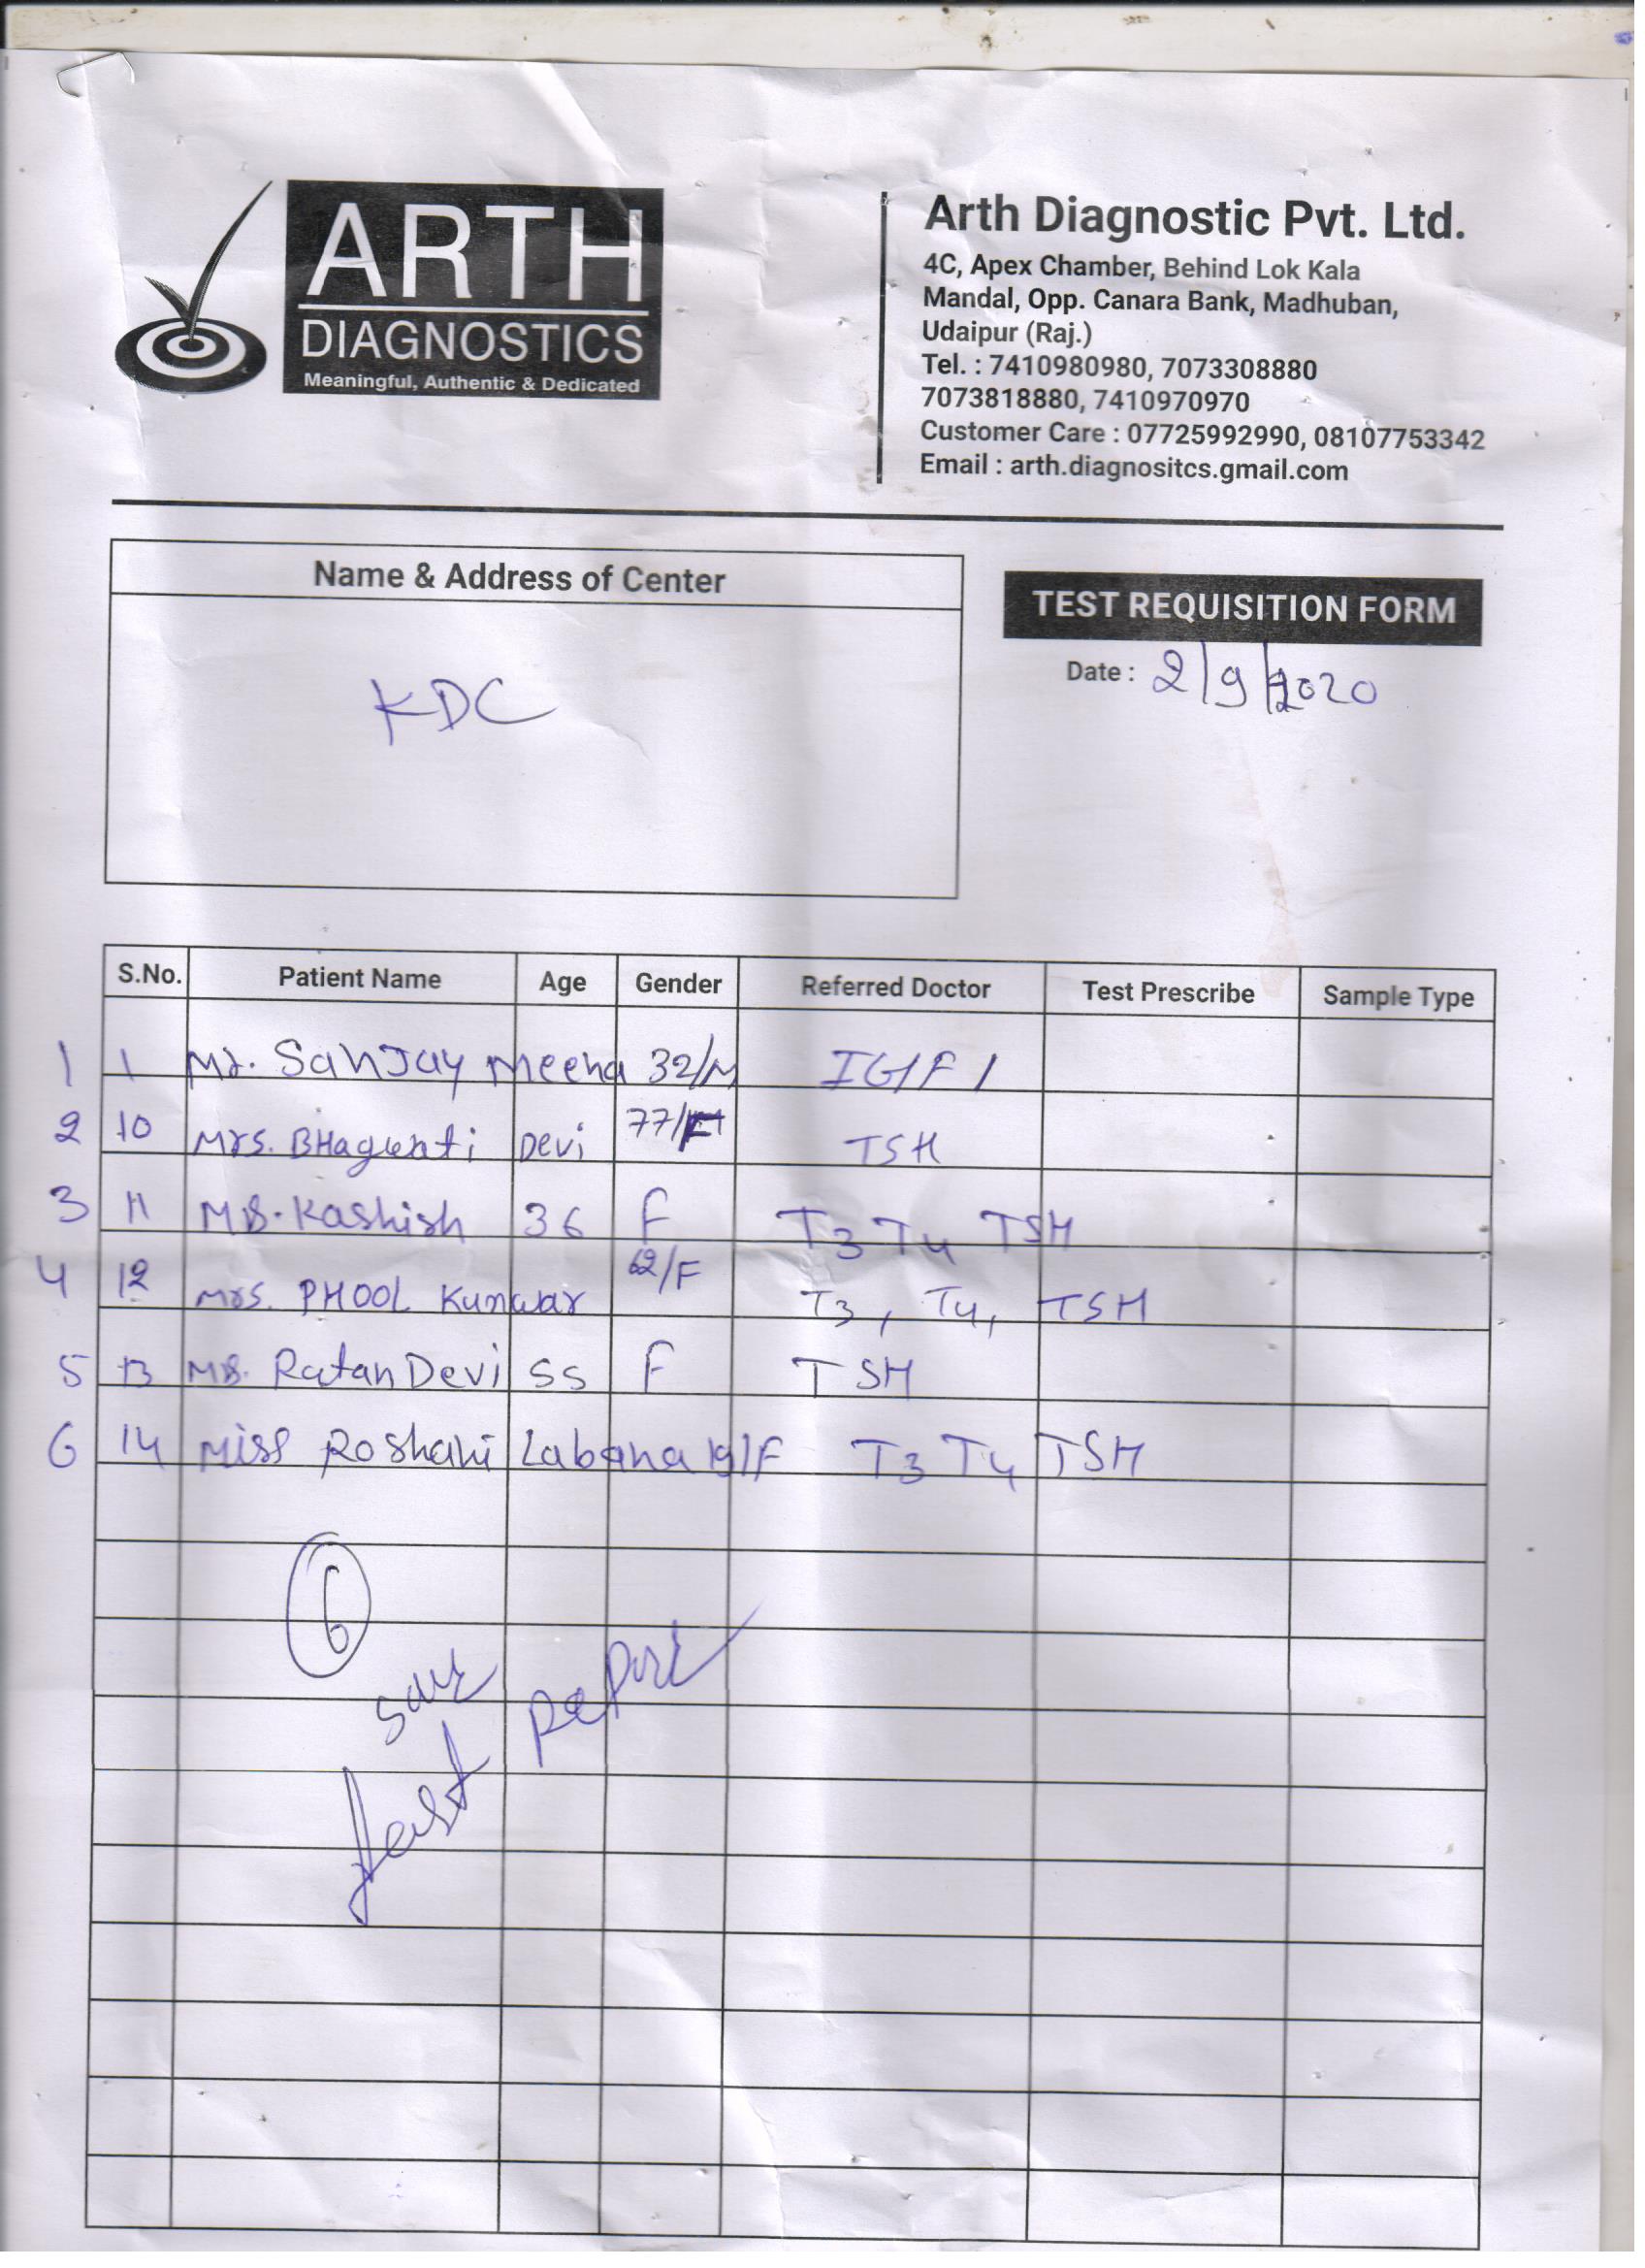 ARTH
DIAGNOSTICS
Meaningful, Authentic & Dedicated
Arth Diagnostic Pvt. Ltd.
4C, Apex Chamber, Behind Lok Kala
Mandal, Opp. Canara Bank, Madhuban,
Udaipur (Raj.)
Tel. : 7410980980, 7073308880
7073818880, 7410970970
Customer Care : 07725992990, 08107753342
Email : arth.diagnositcs.gmail.com
Name & Address of Center
KDC
TEST REQUISITION FORM
Date : 2/9/2020
S.No. Patient Name Age Gender Referred Doctor Test Prescribe Sample Type
1 1 Mr. Sanjay Meena 32/M IGF 1
2 10 Mrs. BHagwati Devi 77/F TSH
3 11 Kashish 36 F T3 T4 TSH
4 12 Mrs. PHOOL Kunwar 62/F T3, T4, TSH
5 13 Ratan Devi 55 F TSH
6 14 Miss Roshani Labana 19/F T3 T4 TSH
6
fast Report